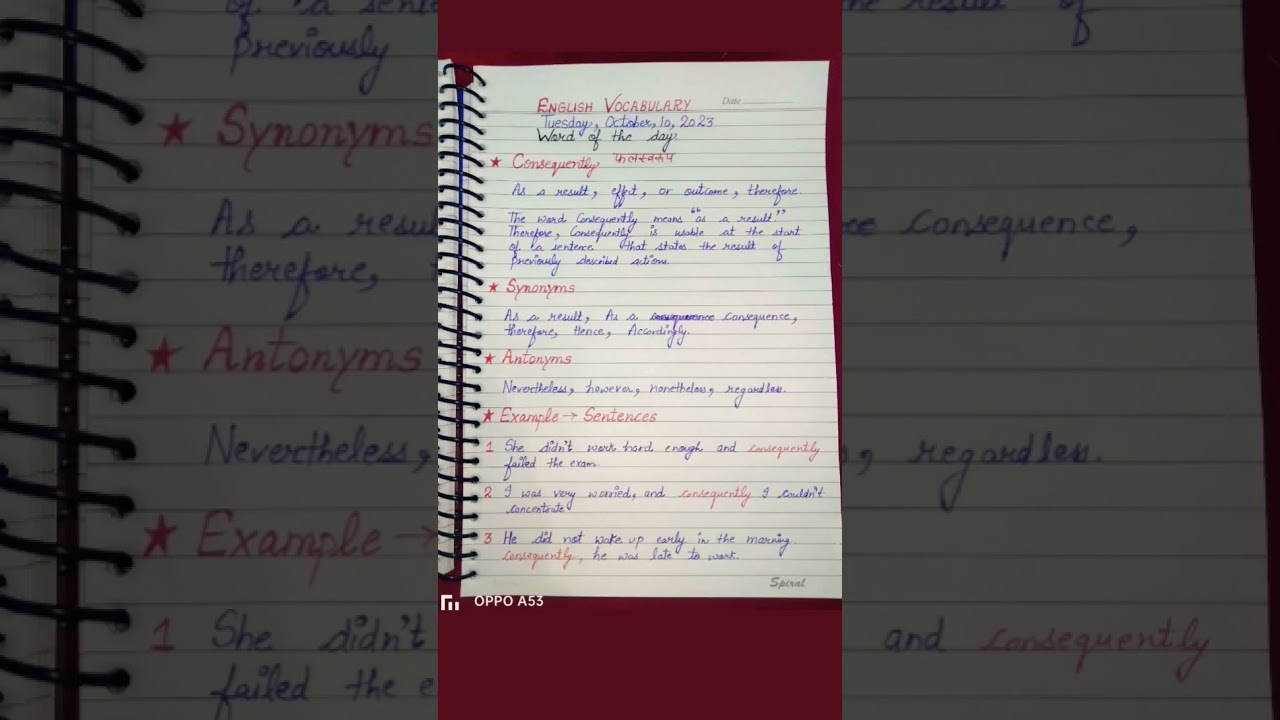 ENGLISH VOCABULARY
Date
Tuesday, October, 10, 2023
Word of the day
★ Consequently फलस्वरूप
As a result, effect, or outcome, therefore.
The word Consequently means "as a result"
Therefore, Consequently is usable at the start
of a sentence that states the result of
previously described actions.
★ Synonyms
As a result, As a consequence,
therefore, Hence, Accordingly.
★ Antonyms
Nevertheless, however, nonetheless, regardless.
★ Example → Sentences
1 She didn't work hard enough and consequently
failed the exam.
2 I was very worried, and consequently I couldn't
concentrate
3 He did not wake up early in the morning.
consequently, he was late to work.
Spiral
OPPO A53